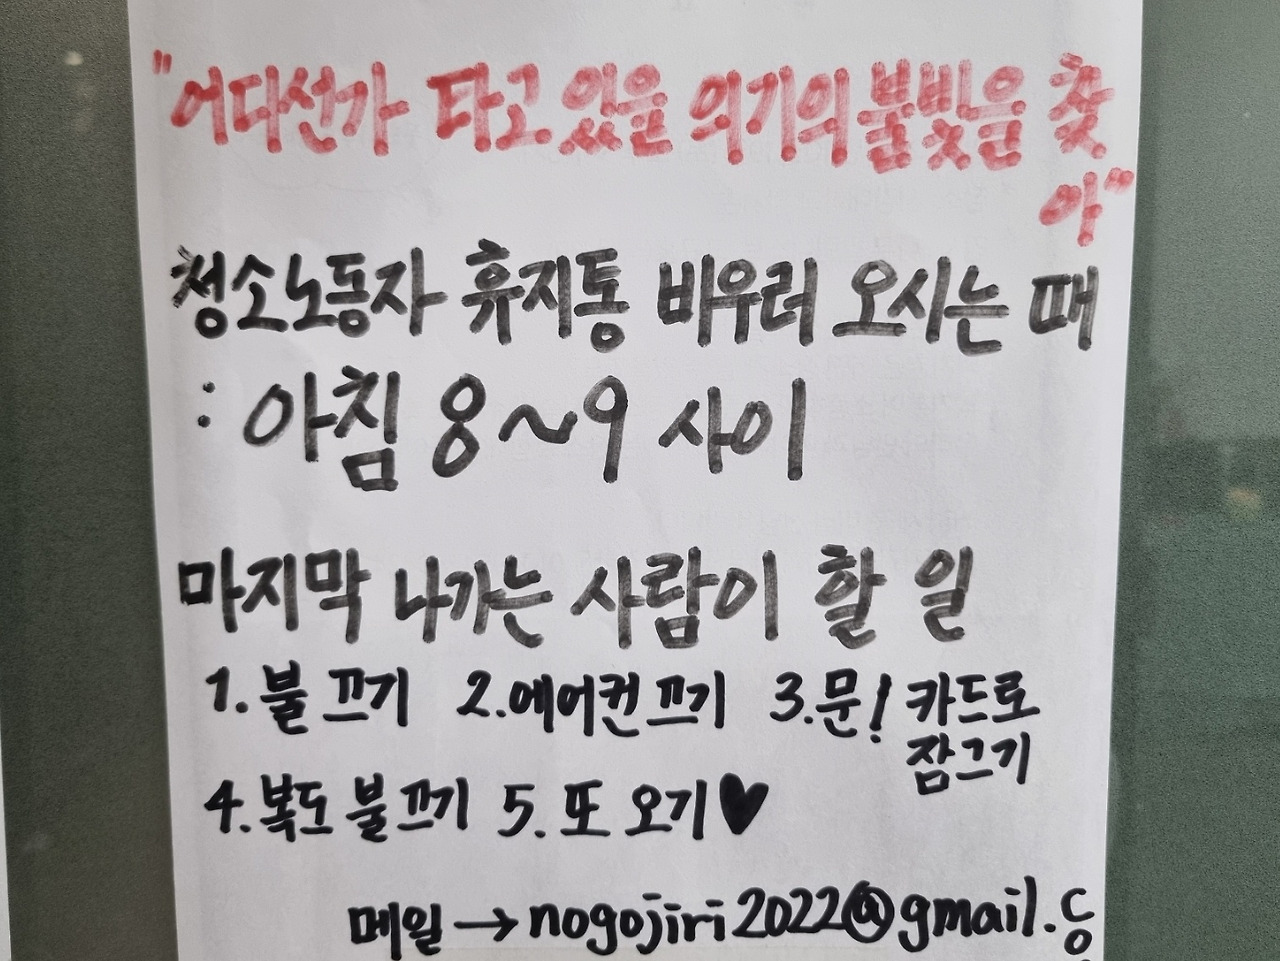 "어디선가 타고있을 의기의 불빛을 찾
아"
청소노동자 휴지통 비우러 오시는 때
: 아침 8~9 사이
마지막 나가는 사람이 할 일
1. 불 끄기 2. 에어컨 끄기 3. 문! 카드로
잠그기
4. 복도 불 끄기 5. 또 오기♥
메일→nogojiri2022@gmail.co